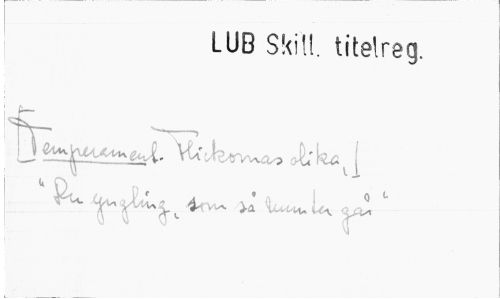 LUB Skill. titelreg.
[Temperament. Flickornas olika,]
"Du yngling, som så munter går"